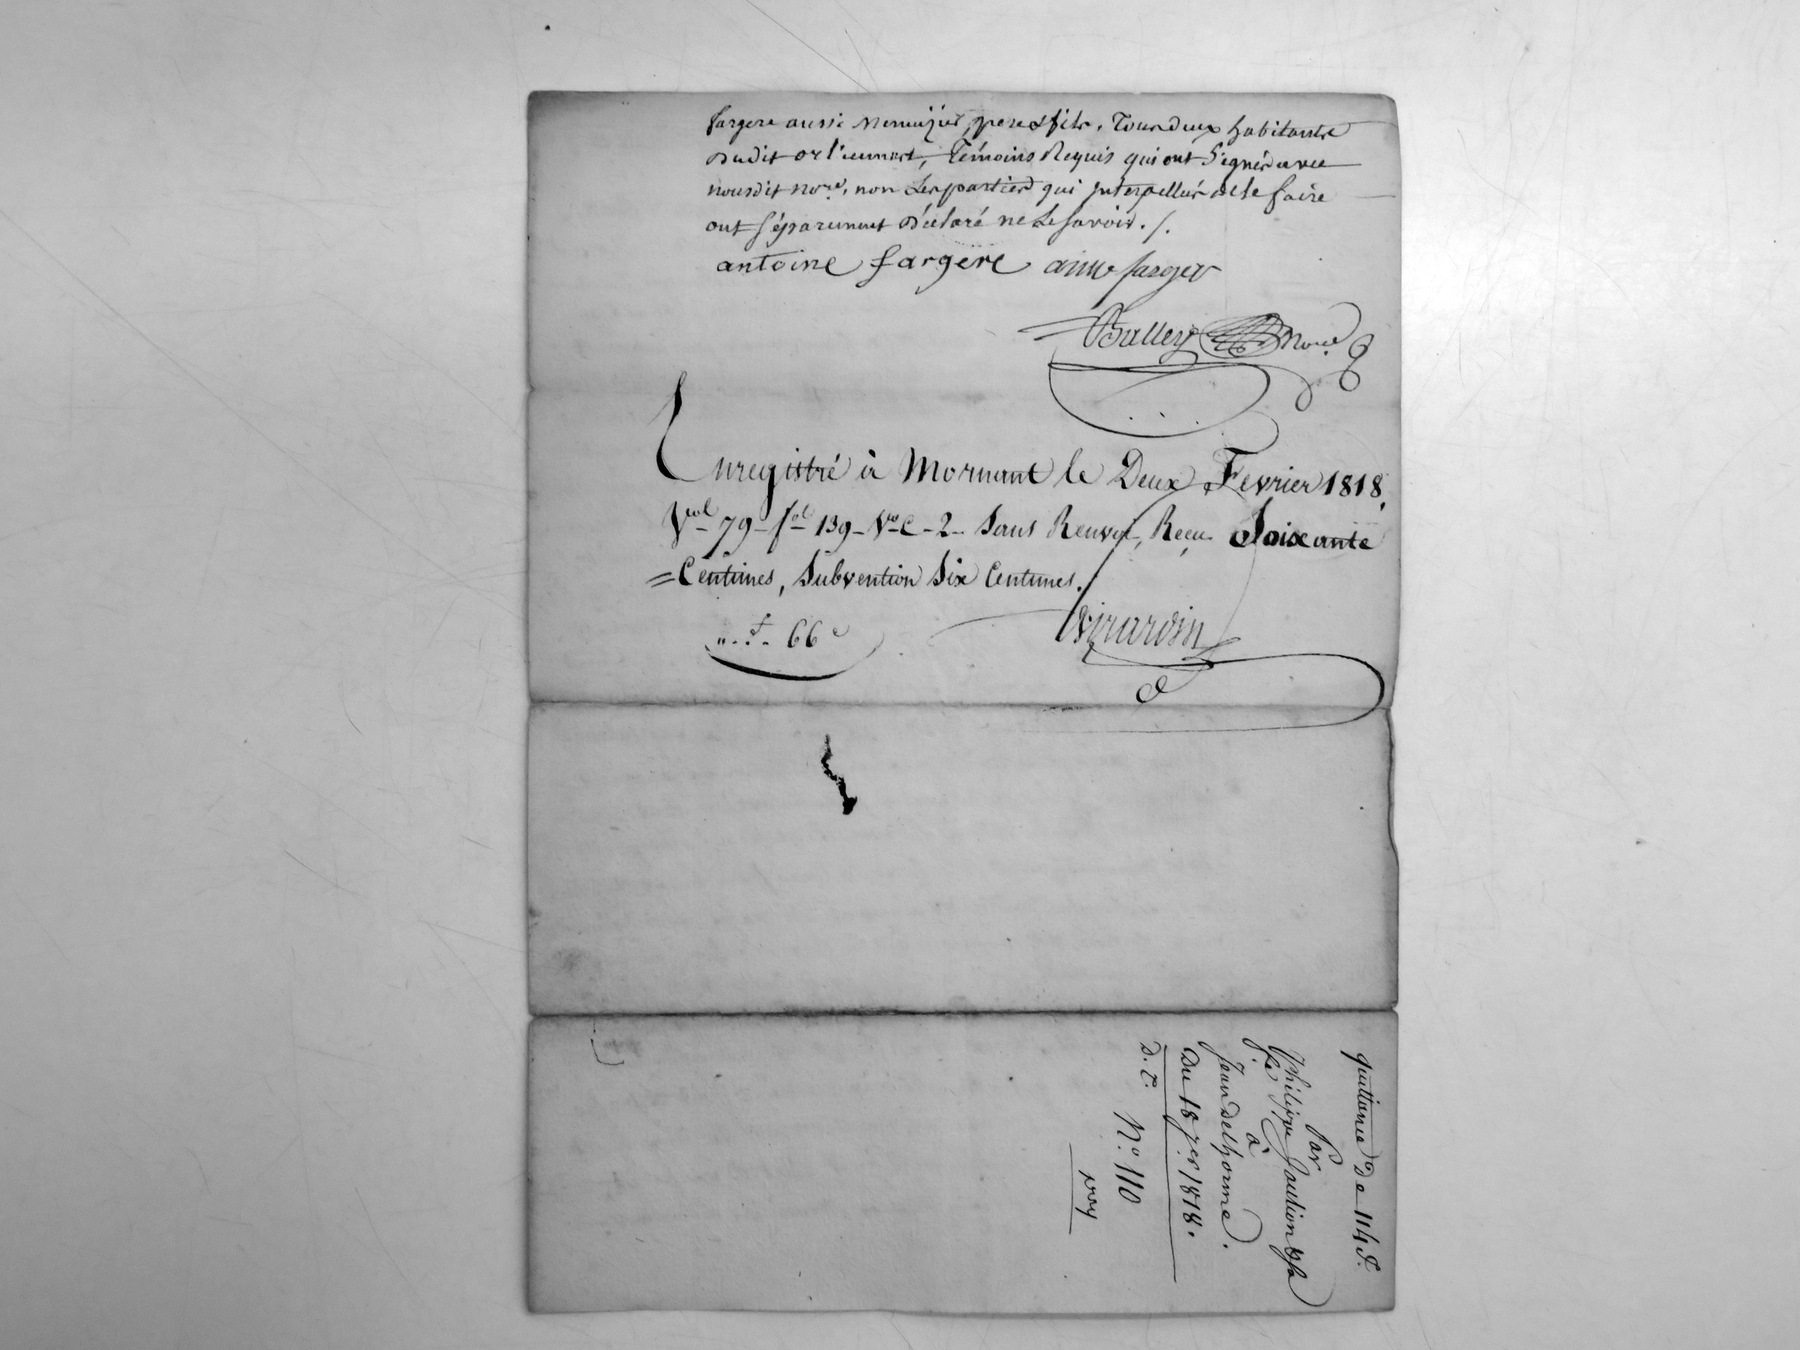 fargere aussi Menuizier, pere & fils, Tous deux habitants
Dudit Orliennart, Témoins Requis qui ont Signés avec
nousdit Nore, non Les parties qui Interpellés de le faire
ont Séparement Déclaré ne Le Savoir ./.
antoine fargere aime farger
Balley Nore
Enregistré à Mornant le Deux Fevrier 1818,
Vol 79 - fol 139 - Vo C - 2 - Sans Renvoi, Reçu Soixante
= Centimes, Subvention Six Centimes.
" . f . 66 c
Girardin
quittance De 114 f.
Par
Philippe Jaution & sa
fe
à
Jean delhorme.
Du 18 Jer 1818.
D. T. No. 110